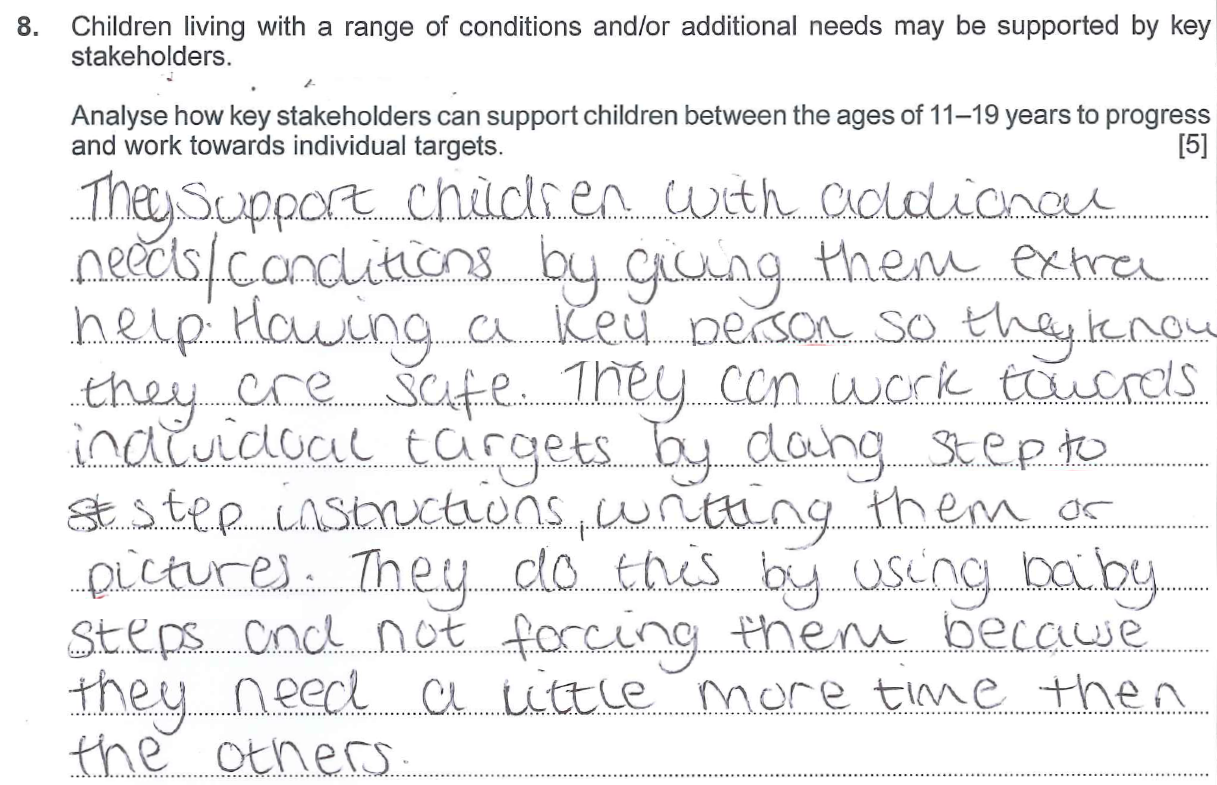 8. Children living with a range of conditions and/or additional needs may be supported by key
stakeholders.
Analyse how key stakeholders can support children between the ages of 11–19 years to progress
and work towards individual targets. [5]
They support children with addional
needs/conditions by giving them extra
help. Having a key person so they know
they are safe. They can work towards
individual targets by doing step to
st step instructions, writting them or
pictures. They do this by using baby
steps and not forcing them because
they need a little more time then
the others.